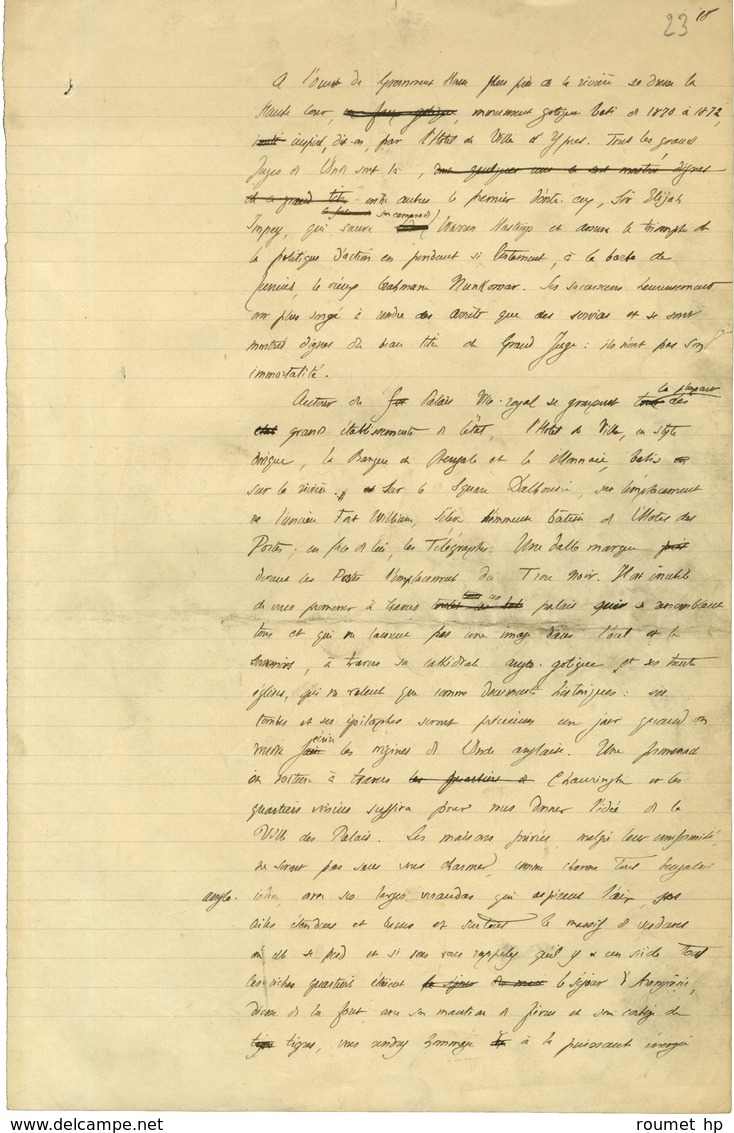 23 18
A l'ouest de Government House plus près de la rivière se dresse la
Haute Cour, monument gothique bati de 1870 à 1872,
inspiré, dit-on, par l'Hôtel de Ville d'Ypres. Tous les grands
Juges de l'Inde sont là,
et ce grand titre entre autres le premier d'entre eux, Sir Elijah
son camarade
Impey, qui sauva Warren Hastings et assura le triomphe de
la politique d'action en pendant si lestement, à la barbe de
Junius, le vieux brahmane Nunkomar. Ses successeurs heureusement
ont plus songé à rendre des arrêts que des services et se sont
montrés dignes du beau titre de Grand Juge : ils n'ont pas son
immortalité.
la plupart
Autour du Palais Vice-royal se groupent des
grands établissements de l'état, l'Hôtel de Ville, en style
dorique, la Banque de Bengale et la Monnaie, batis
sur la rivière. Sur le Square Dalhousie, sur l'emplacement
de l'ancien Fort William, s'élève l'immense bâtisse de l'Hôtel des
Postes ; en face de lui, les Télégraphes. Une dalle marque
devant les Postes l'emplacement du Trou Noir. Il est inutile
ces
de vous promener à travers palais qui se ressemblent
tous et qui ne laissent pas une image dans l'œil et le
souvenir, à travers sa cathédrale anglo-gothique et ses trente
églises, qui ne valent que comme documents historiques : ses
tombes et ses épitaphes seront précieuses un jour quand on
écrire
voudra les origines de l'Inde anglaise. Une promenade
en voiture à travers Chowringhee et les
quartiers voisins suffira pour vous donner l'idée de la
Ville des Palais. Les maisons privées malgré leur uniformité,
ne seront pas sans vous charmer, comme charme tout bengalow
anglo-indien, avec ses larges vérandas qui aspirent l'air, ses
ailes étendues et basses et le massif de verdures
où elle se perd et si vous vous rappelez qu'il y a un siècle tous
ces riches quartiers étaient le séjour d'Aranyâni,
déesse de la forêt, avec son manteau de fièvres et son cortège de
tigres, vous rendrez hommage à la puissante énergie
roumet hp